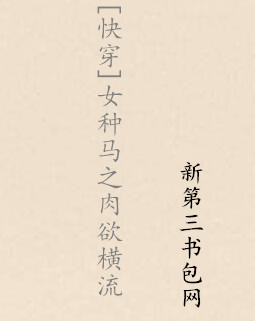 [快穿]女种马之肉欲横流
新第三书包网